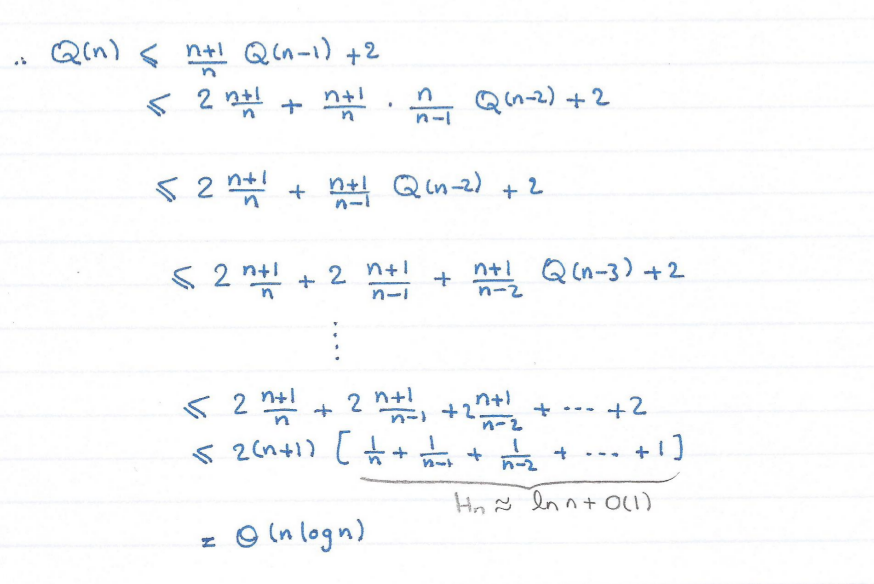 ∴ Q(n) ≤ \frac{n+1}{n} Q(n-1) + 2
≤ 2 \frac{n+1}{n} + \frac{n+1}{n} . \frac{n}{n-1} Q(n-2) + 2
≤ 2 \frac{n+1}{n} + \frac{n+1}{n-1} Q(n-2) + 2
≤ 2 \frac{n+1}{n} + 2 \frac{n+1}{n-1} + \frac{n+1}{n-2} Q(n-3) + 2
⋮
≤ 2 \frac{n+1}{n} + 2 \frac{n+1}{n-1} + 2 \frac{n+1}{n-2} + --- + 2
≤ 2(n+1) [ \frac{1}{n} + \frac{1}{n-1} + \frac{1}{n-2} + ... + 1 ]
H_n ≈ ln n + O(1)
= Θ(n log n)